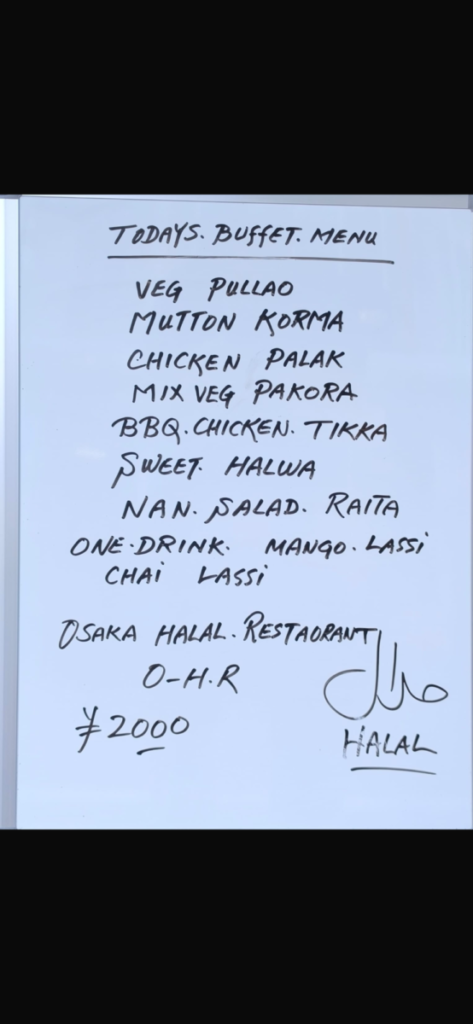 TODAYS. BUFFET. MENU
VEG PULLAO
MUTTON KORMA
CHICKEN PALAK
MIX VEG PAKORA
BBQ. CHICKEN. TIKKA
SWEET. HALWA
NAN. SALAD. RAITA
ONE. DRINK. MANGO. LASSi
CHAi LASSi
OSAKA HALAL. RESTAORANT
O-H.R
حلال
¥2000
HALAL